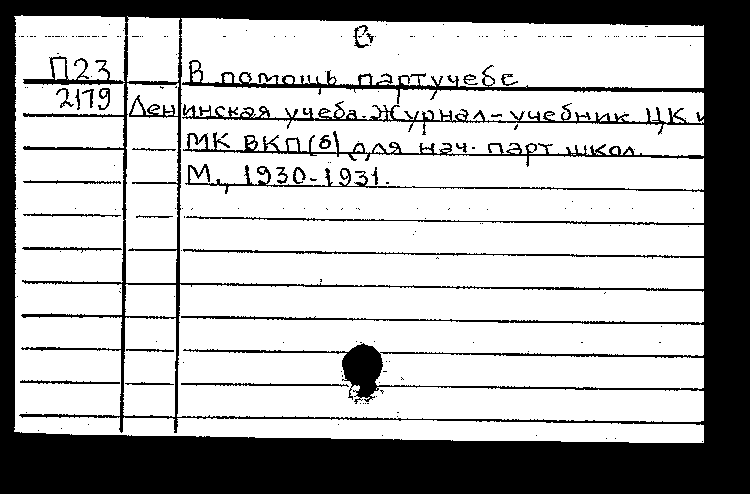 В
П23 В помощь партучебе
2179 Ленинская учеба. Журнал-учебник ЦК и
МК ВКП(б) для нач. парт. школ.
М., 1930-1931.